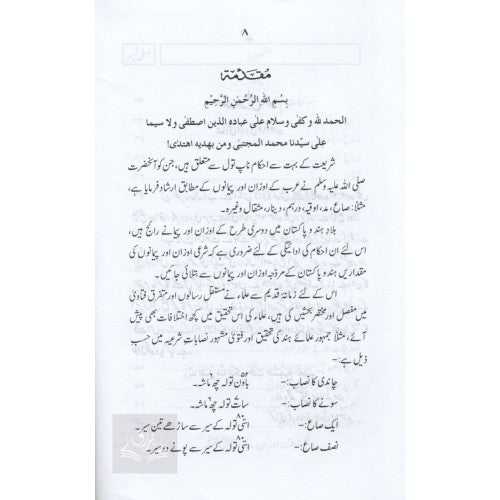 ۸
مُقدّمۃ
بِسْمِ اللهِ الرَّحْمٰنِ الرَّحِیْمِ
الحمد لله و کفٰی وسلام علٰی عباده الذین اصطفٰی ولا سیما
علٰی سیّدنا محمد المجتبٰی ومن بهدیه اهتدی!
شریعت کے بہت سے احکام ناپ تول سے متعلق ہیں، جن کو آنحضرت
صلی اللہ علیہ وسلم نے عرب کے اوزان اور پیمانوں کے مطابق ارشاد فرمایا ہے،
مثلاً: صاع، مد، اوقیہ، درہم، دینار، مثقال وغیرہ۔
بلادِ ہند و پاکستان میں دوسری طرح کے اوزان اور پیمانے رائج ہیں،
اس لئے ان احکام کی ادائیگی کے لئے ضروری ہے کہ شرعی اوزان اور پیمانوں کی
مقداریں ہند و پاکستان کے مروّجہ اوزان اور پیمانوں سے بتلائی جائیں۔
اس کے لئے زمانۂ قدیم سے علماء نے مستقل رسالوں اور متفرق فتاویٰ
میں مفصل اور مختصر بحثیں کی ہیں، علماء کی اس تحقیق میں کچھ اختلافات بھی پیش
آئے، مثلاً جمہور علمائے ہند کی تحقیق اور فتویٰ مشہور نصاباتِ شرعیہ میں حسبِ
ذیل ہے:-
چاندی کا نصاب:- باون تولہ چھ ماشہ۔
سونے کا نصاب:- سات تولہ چھ ماشہ۔
ایک صاع:- اسّی ۸۰ تولہ کے سیر سے ساڑھے تین سیر۔
نصف صاع:- اسّی ۸۰ تولہ کے سیر سے پونے دو سیر۔